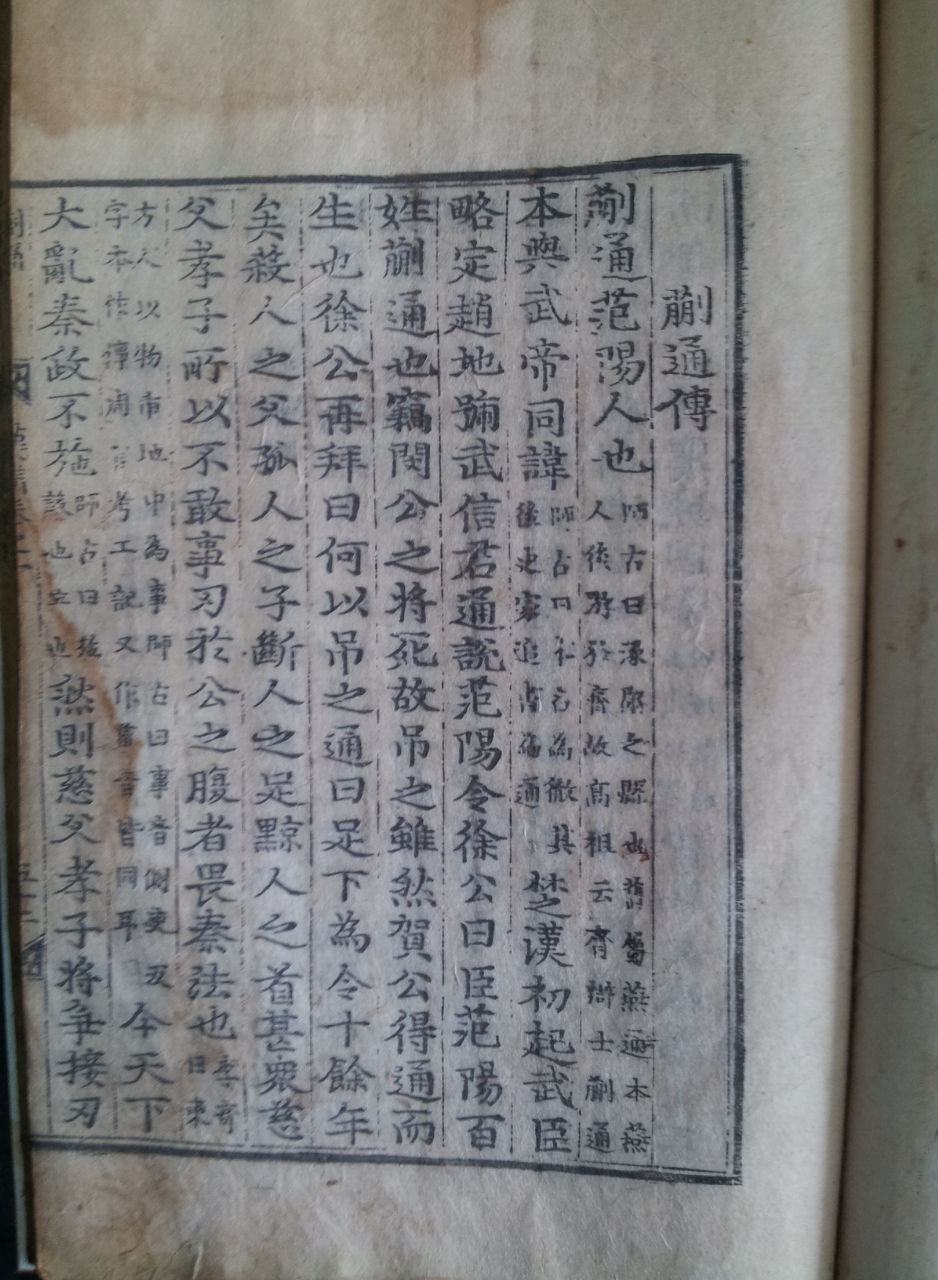 蒯通傳
蒯通范陽人也師古曰涿郡之縣也舊屬燕通本燕人後游於齊故高祖云齊辯士蒯通
本與武帝同諱師古曰本名爲徹其後史家追書爲通楚漢初起武臣
略定趙地號武信君通說范陽令徐公曰臣范陽百
姓蒯通也竊閔公之將死故吊之雖然賀公得通而
生也徐公再拜曰何以吊之通曰足下為令十餘年
矣殺人之父孤人之子斷人之足黥人之首甚衆慈
父孝子所以不敢事刃於公之腹者畏秦法也李奇曰東
方人以物臿地中為事師古曰事音側吏反字本作倳周官考工記又作菑音皆同耳今天下
大亂秦政不施師古曰施設也立也然則慈父孝子將爭接刃